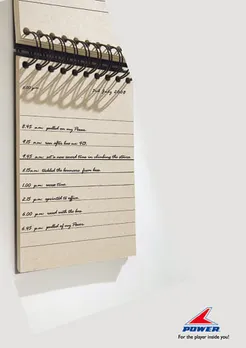 July 2008
8.45 a.m. pulled on my Power.
9.15 a.m. ran after bus no. 90.
9.45 a.m. set a new record time in climbing the stairs
tackled the business
1.00 p.m. reset time
2.15 p.m. sprinted to office
6.00 p.m. raced with the bus
6.45 p.m. pulled off my Power.
POWER
For the player inside you!